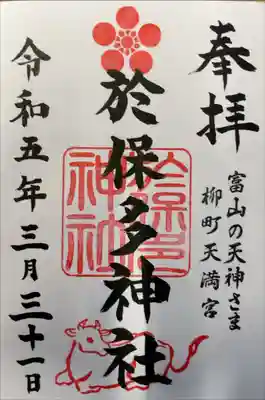 奉拝
富山の天神さま
柳町天満宮
於保多神社
於保多神社
令和五年三月三十一日